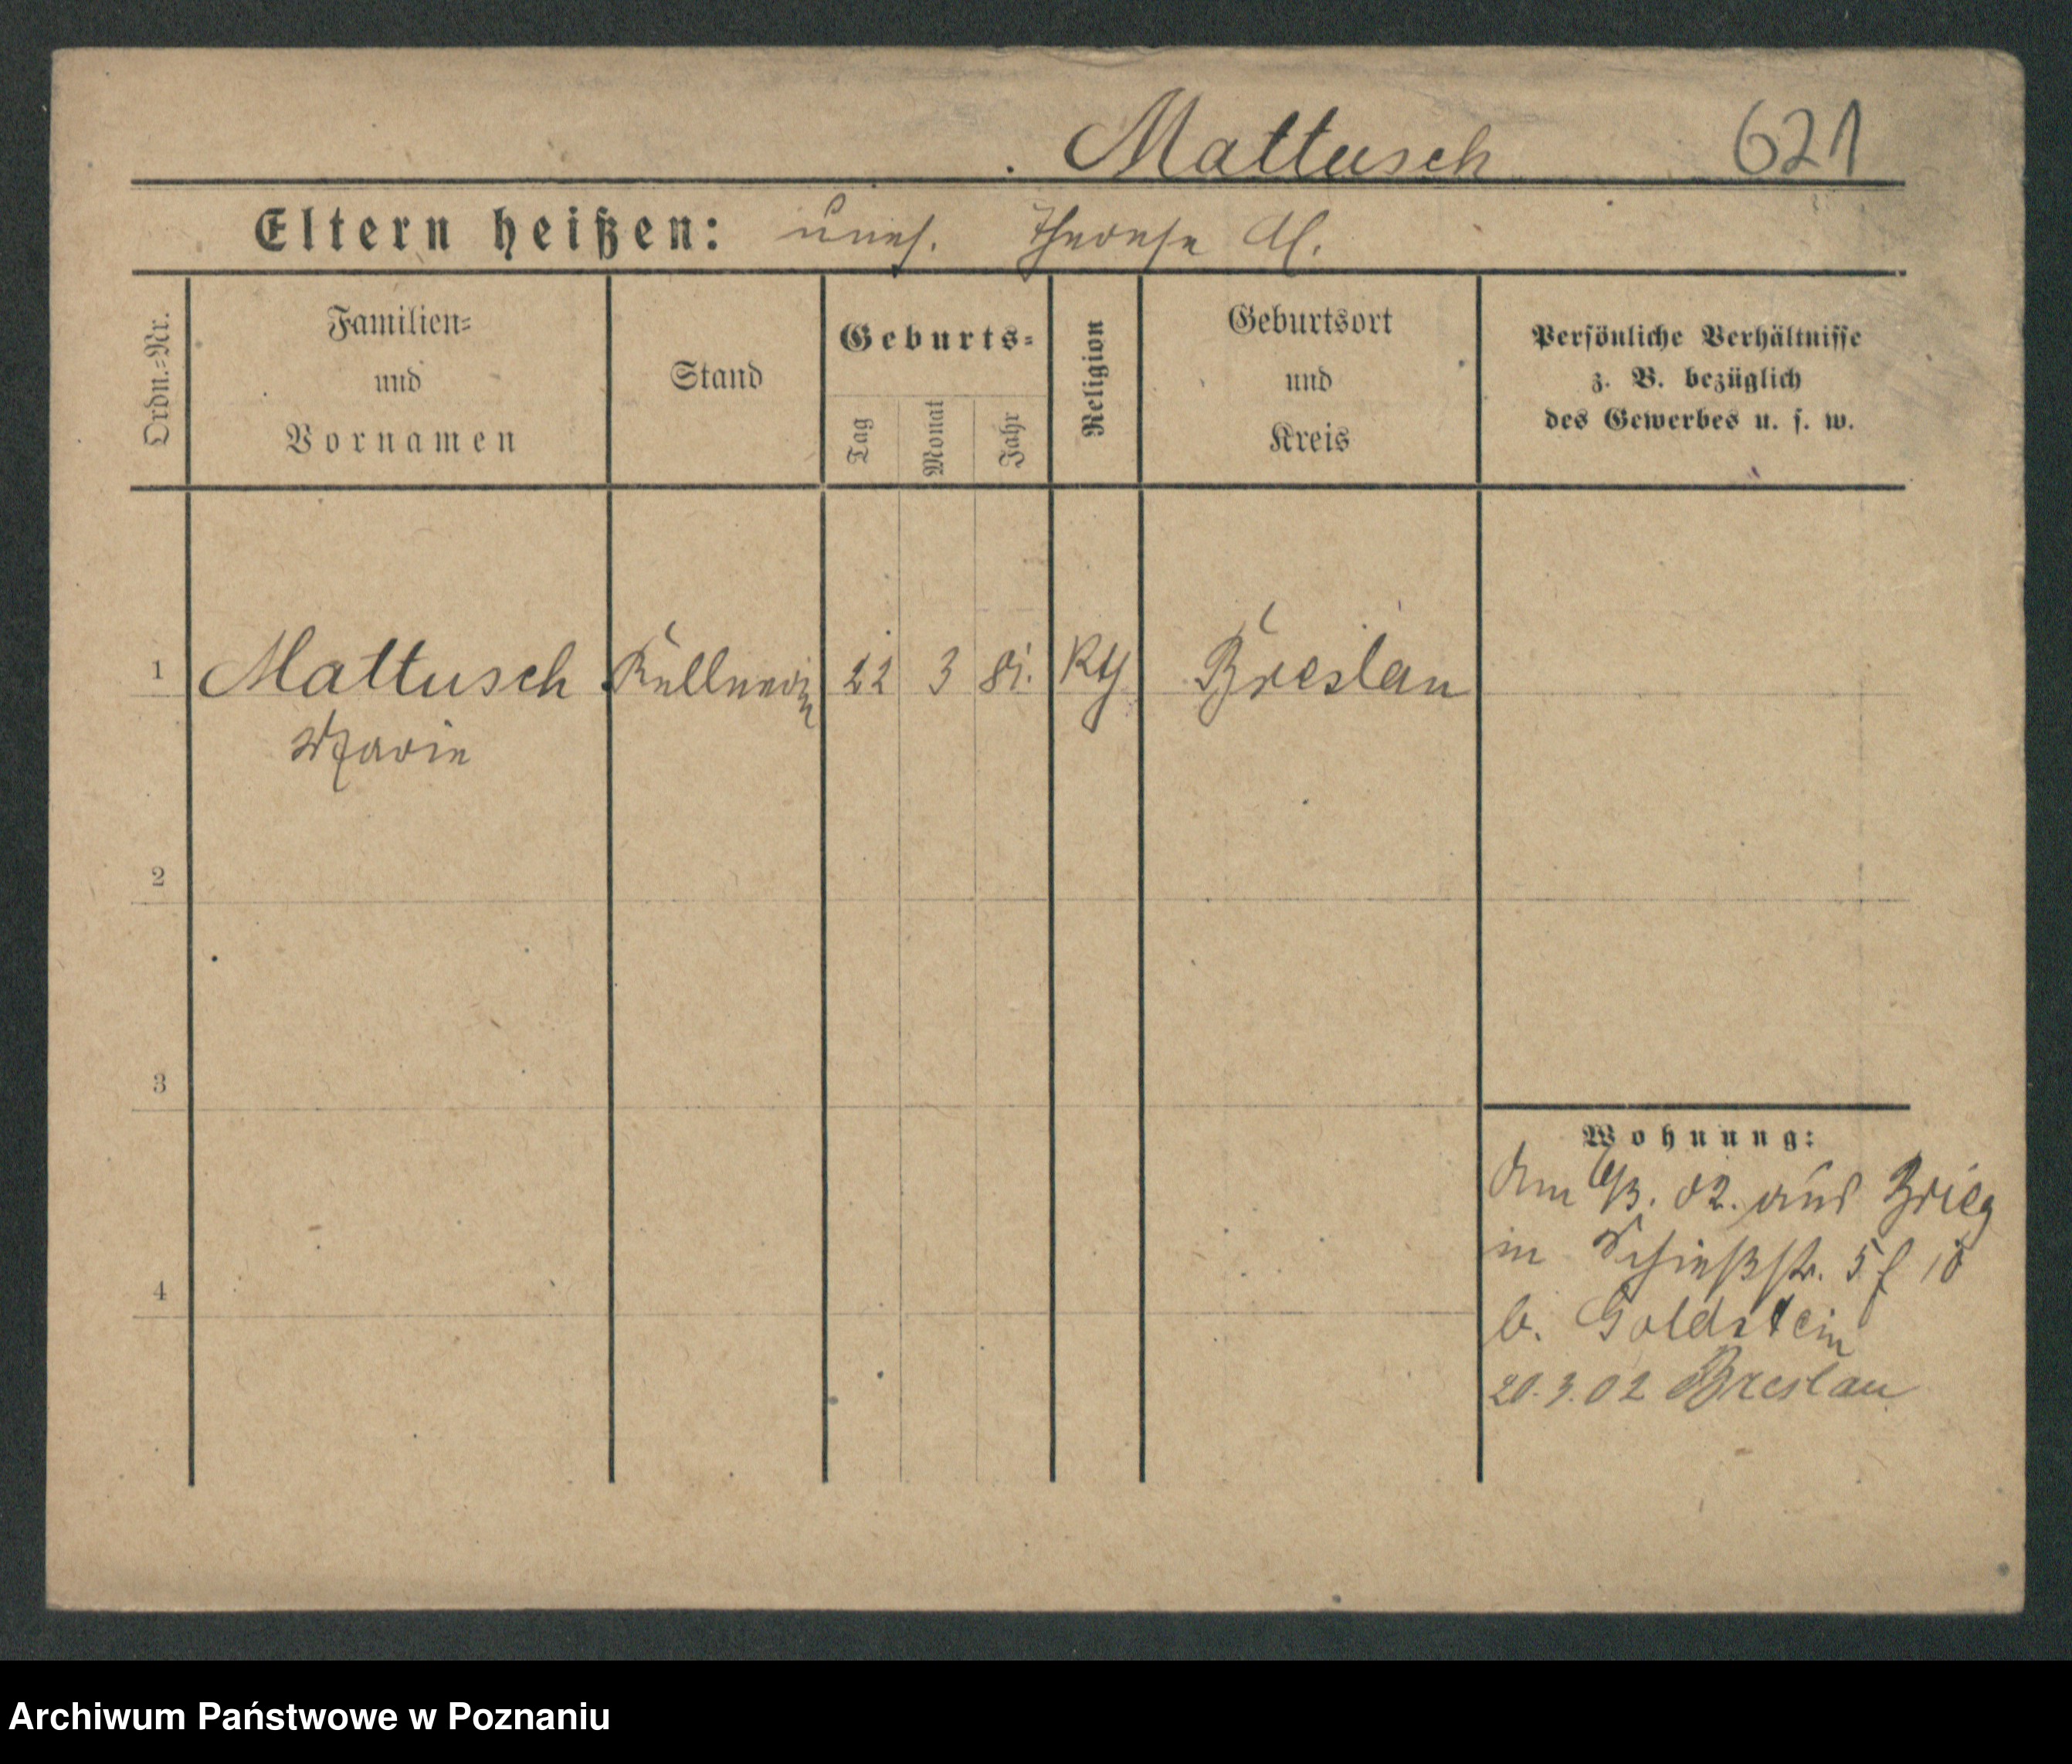 Mattusch 621
Eltern heißen: uneh. Therese M.
Ordn.=Nr.
Familien=
und
Vornamen
Stand
Geburts=
Tag
Monat
Jahr
Religion
Geburtsort
und
Kreis
Persönliche Verhältnisse
z. B. bezüglich
des Gewerbes u. s. w.
1 Mattusch Kellnerin 22 3 81. Kth Breslau
Marie
2
3
4
Wohnung:
Am /3. 02. aus Brieg
in Schießstr. 5
b. Goldstein
20.3.02 Breslau
Archiwum Państwowe w Poznaniu